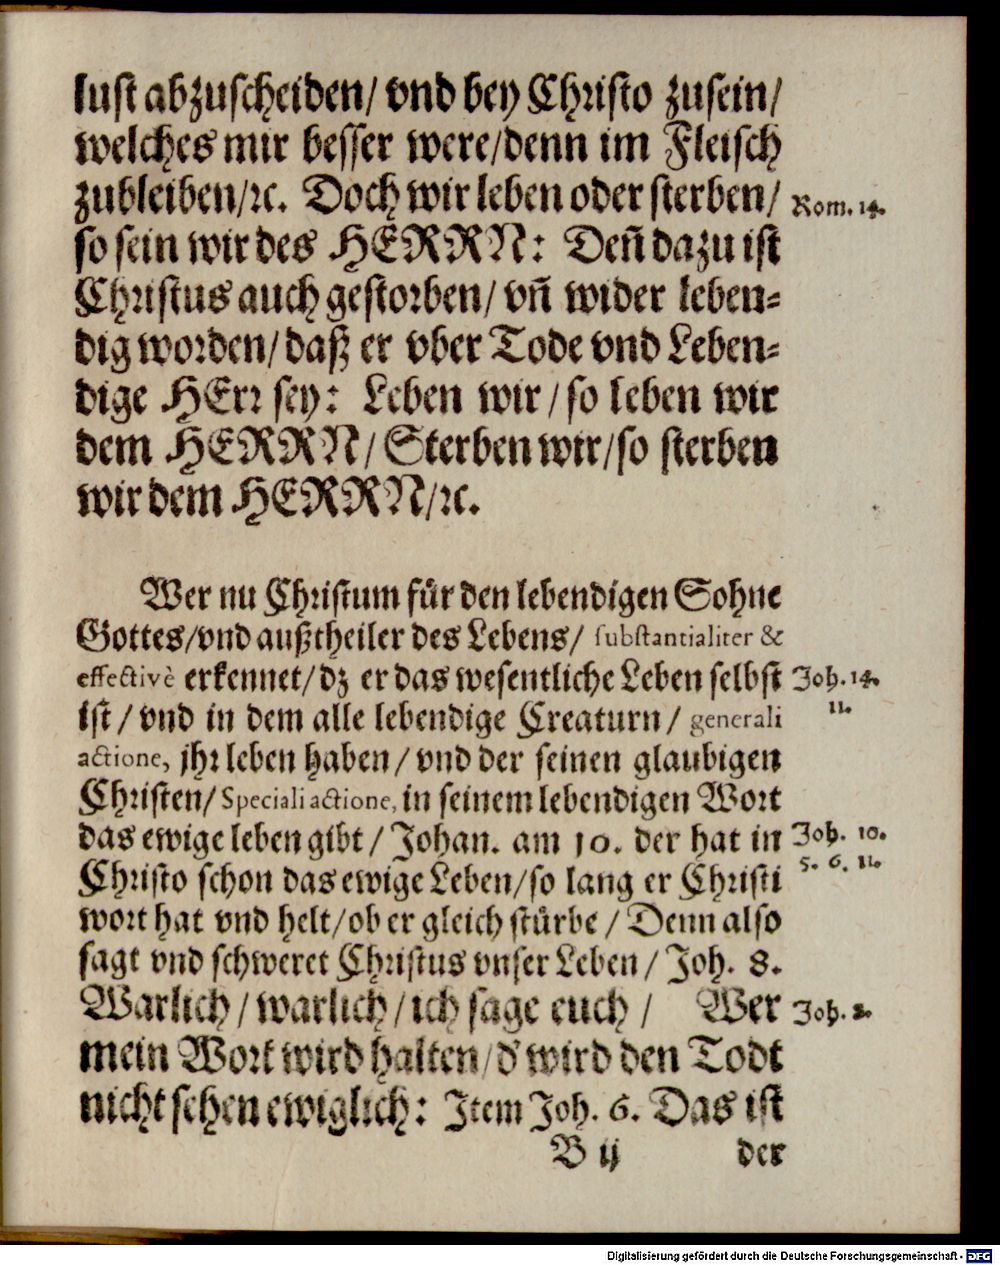 lust abzuscheiden/ vnd bey Christo zusein/
welches mir besser were/denn im Fleisch
zubleiben/ꝛc. Doch wir leben oder sterben/ Rom. 14.
so sein wir des HERRN: Deñ dazu ist
Christus auch gestorben/ vñ wider leben-
dig worden/ daß er vber Tode vnd Leben-
dige HErr sey: Leben wir / so leben wir
dem HERRN/ Sterben wir/so sterben
wir dem HERRN/ꝛc.
Wer nu Christum für den lebendigen Sohne
Gottes/vnd außtheiler des Lebens/ substantialiter &
effectivè erkennet/ dz er das wesentliche Leben selbst Joh. 14.
ist / vnd in dem alle lebendige Creaturn / generali 11.
actione, jhr leben haben / vnd der seinen glaubigen
Christen/ Speciali actione, in seinem lebendigen Wort
das ewige leben gibt / Johan. am 10. der hat in Joh. 10.
Christo schon das ewige Leben/so lang er Christi 5. 6. 11.
wort hat vnd helt/ob er gleich stürbe / Denn also
sagt vnd schweret Christus vnser Leben / Joh. 8.
Warlich / warlich / ich sage euch / Wer Joh. 8.
mein Wort wird halten/d' wird den Todt
nicht sehen ewiglich: Item Joh. 6. Das ist
B ij der
Digitalisierung gefördert durch die Deutsche Forschungsgemeinschaft - DFG